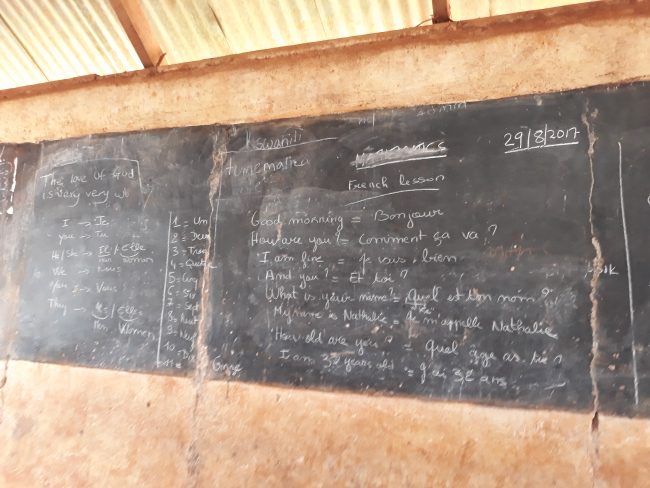 The love of God
is very very
I → Je
you → Tu
He/She → Il / Elle
man woman
We → Nous
You → Vous
They → Ils / Elles
men Women
1 = Un
2 = Deux
3 = Trois
4 = Quatre
5 = Cinq
6 = Six
7 = Sept
8 = Huit
9 = Neuf
10 = Dix
11 = Onze
Kswahili
29/8/2017
French lesson
Good morning = Bonjour
How are you? = Comment ça va ?
I am fine = je vais bien
And you? = Et toi ?
What is your name? = Quel est ton nom ?
My name is Nathalie = Je m'appelle Nathalie
How old are you ? = Quel âge as-tu ?
I am 32 years old = J'ai 32 ans